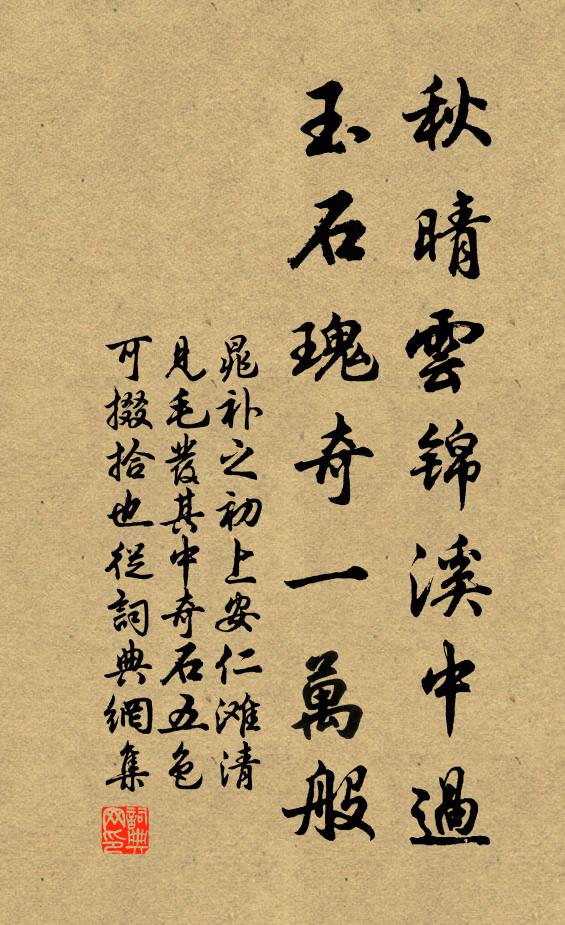 秋晴雲錦溪中過
玉石瑰奇一萬般
晁补之初上安仁滩清
見毛發其中奇石五色
可掇拾也從詞典網集
詞典网印